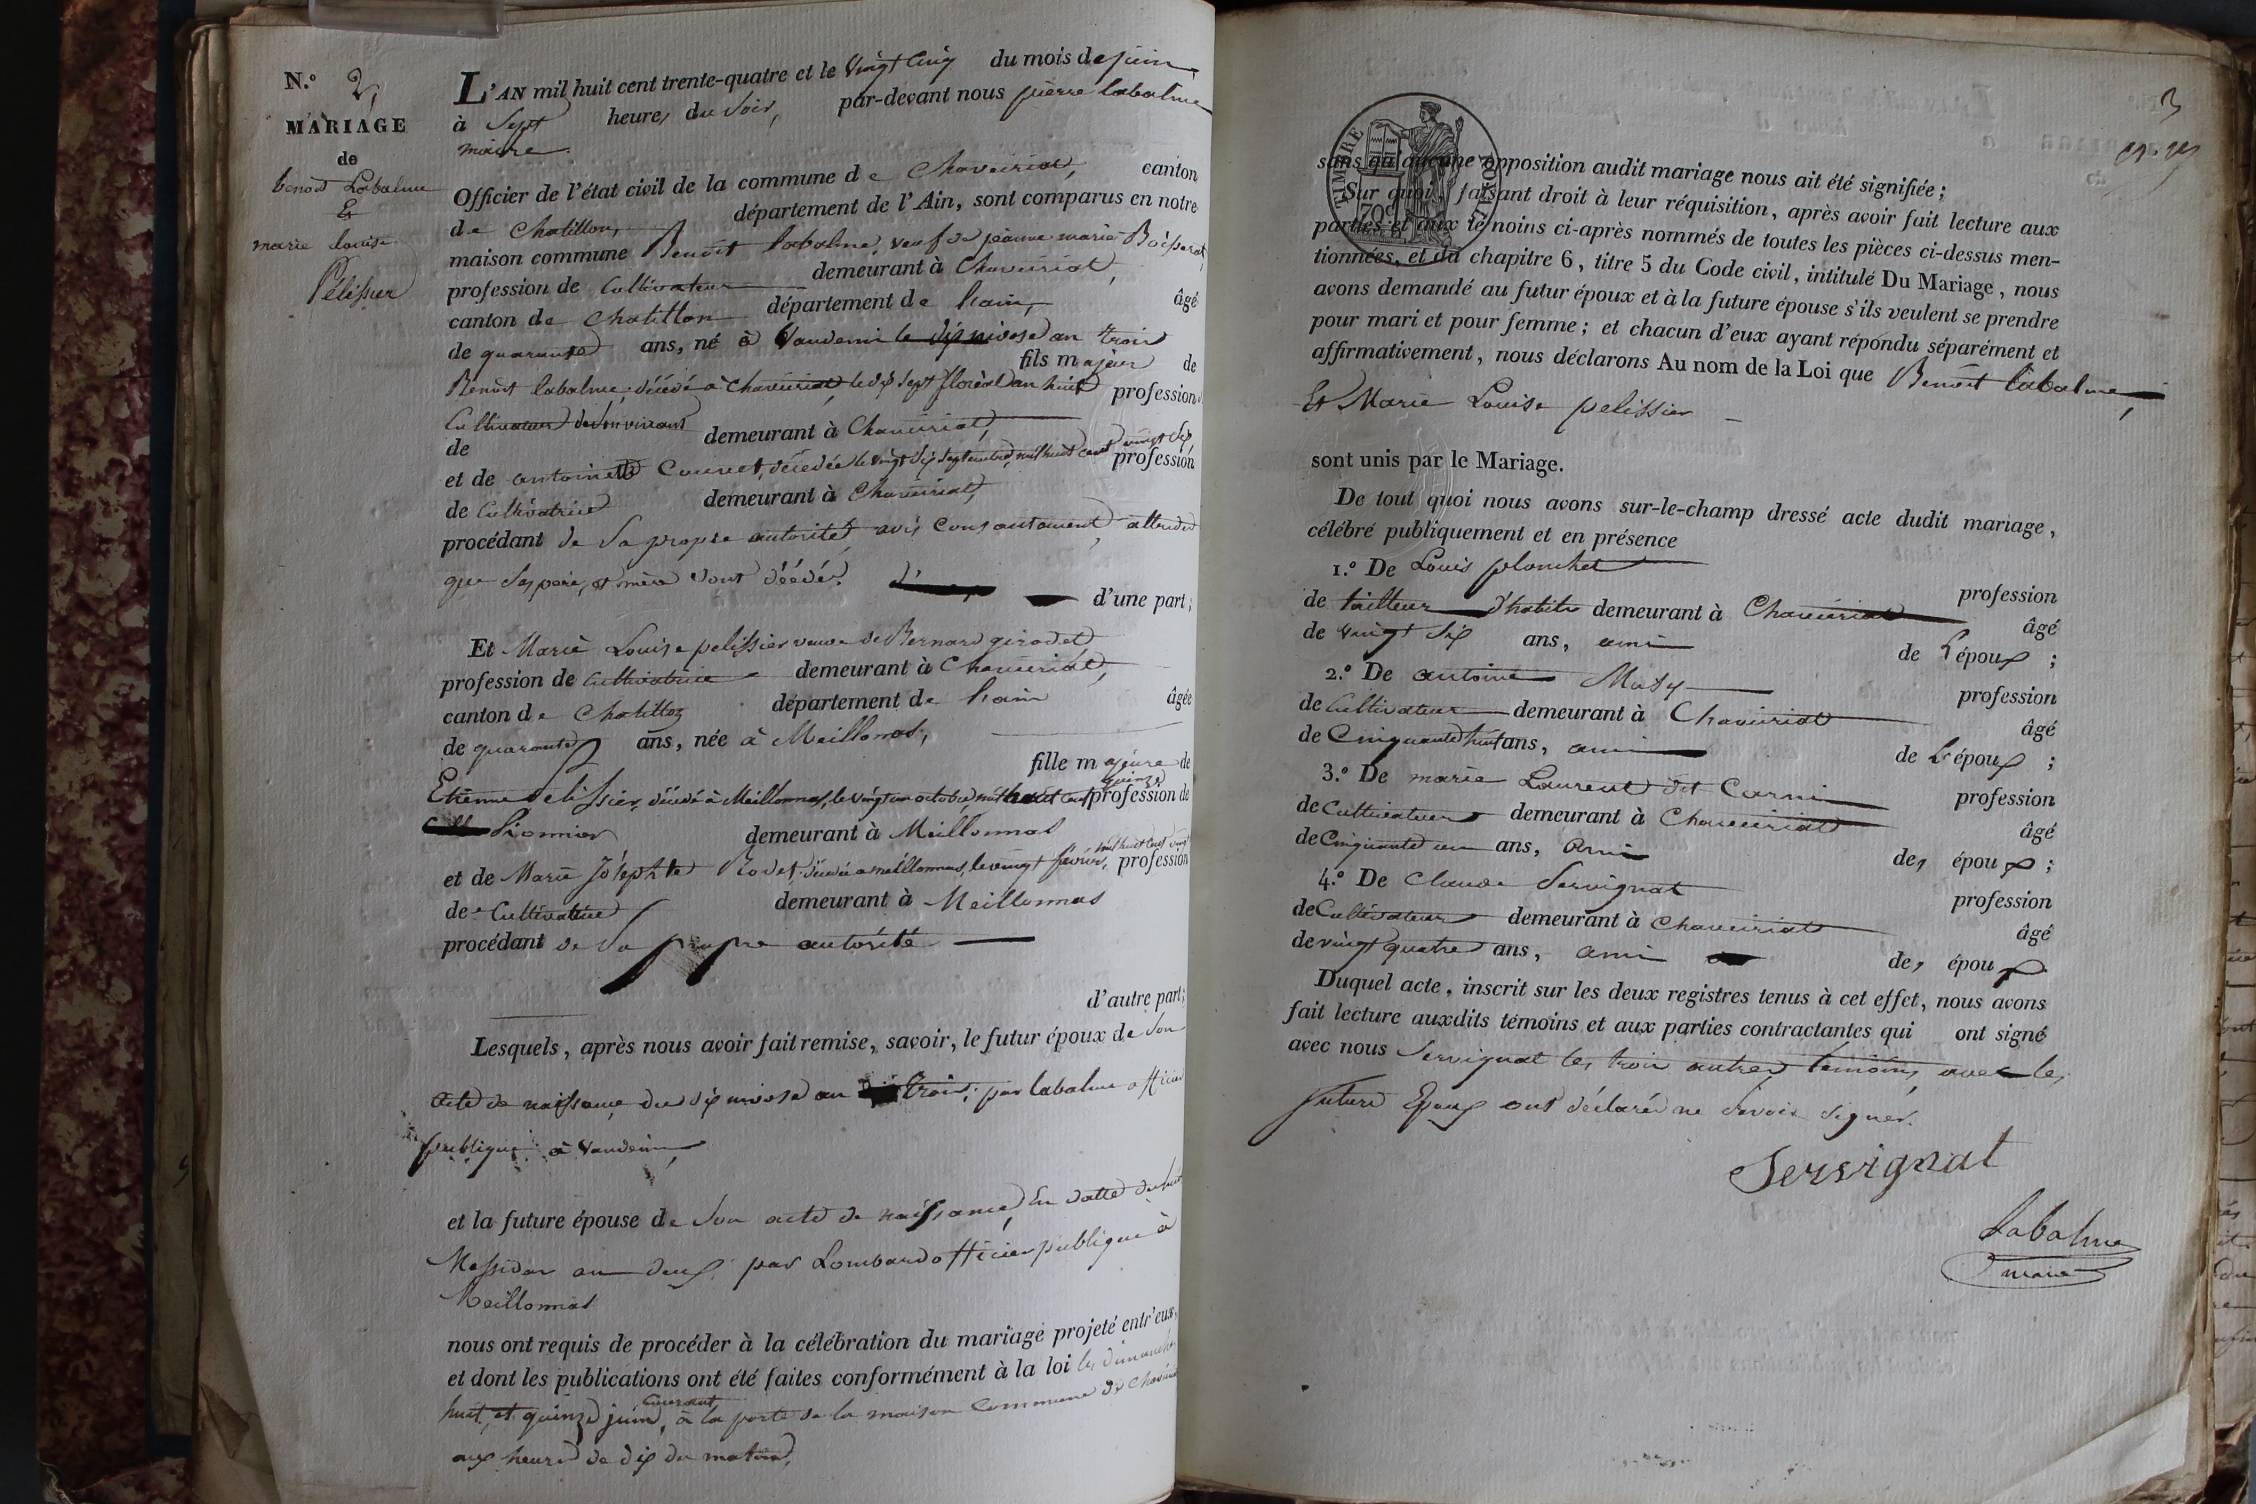 N.° 2,
MARIAGE
de
benoit Labalme
Et
marie louise
Pélissier
L'AN mil huit cent trente-quatre et le vingt cinq du mois de juin,
à Sept heures du Soir, par-devant nous pierre labalme
maire
Officier de l'état civil de la commune de Chaveiriat, canton
de Chatillon, département de l'Ain, sont comparus en notre
maison commune Benoit labalme, veuf de jéanne marie
profession de Cultivateur demeurant à Chaveiriat,
canton de Chatillon département de l'ain, âgé
de quarante ans, né à Vandeins le dix nivose an trois
fils majeur de
Benoit labalme, décédé à Chaveiriat, le dix sept floréal an huit profession
de Cultivateur de son vivant demeurant à Chaveiriat,
et de antoinette Couvet, décédée le vingt six septembre, mil huit cent vingt six profession
de Cultivatrice demeurant à Chaveiriat,
procédant de Sa propre autorité avis consentement, attendu
que Ses père, et mère sont décédés.
d'une part;
Et Marie Louise pelissier veuve de Bernard girodet
profession de Cultivatrice demeurant à Chaveiriat,
canton de Chatillon département de l'ain âgée
de quarante ans, née à Meillonnas,
fille majeure de
Etienne Pelissier, décédé à Meillonnas, le vingt un octobre mil huit cent quinze profession de
Pionnier demeurant à Meillonnas
et de Marie Joséphte Rodet décédée a meillonnas, le vingt février, mil huit cent vingt profession
de Cultivatrice demeurant à Meillonnas
procédant de Sa propre autorité
d'autre part;
Lesquels, après nous avoir fait remise, savoir, le futur époux de Son
acte de naissance du dix nivose an trois, par labalme officier
publique à Vandeins,
et la future épouse de Son acte de naissance, En datte du huit
Messidor an deux par Lombard officier publique à
Meillonnas
nous ont requis de procéder à la célébration du mariage projeté entr'eux,
et dont les publications ont été faites conformément à la loi les dimanches
huit, et quinze juin courant, à la porte de la maison Commune de Chaveiriat
aux heures de dix du matin,
3
TIMBRE ROYAL
70c
sans qu'aucune opposition audit mariage nous ait été signifiée;
Sur quoi, faisant droit à leur réquisition, après avoir fait lecture aux
parties et aux témoins ci-après nommés de toutes les pièces ci-dessus men-
tionnées, et du chapitre 6, titre 5 du Code civil, intitulé Du Mariage, nous
avons demandé au futur époux et à la future épouse s'ils veulent se prendre
pour mari et pour femme; et chacun d'eux ayant répondu séparément et
affirmativement, nous déclarons Au nom de la Loi que Benoit labalme,
Et Marie Louise pelissier
sont unis par le Mariage.
De tout quoi nous avons sur-le-champ dressé acte dudit mariage,
célébré publiquement et en présence
1.° De Louis planchet profession
de tailleur d'habits demeurant à Chaveiriat âgé
de vingt six ans, ami de L'époux;
2.° De antoine Musy profession
de Cultivateur demeurant à Chaveiriat âgé
de Cinquante huit ans, ami de L'époux;
3.° De marie Laurent dit Carni profession
de Cultivateur demeurant à Chaveiriat âgé
de Cinquante un ans, ami de, époux;
4.° De Claude Servignat profession
de Cultivateur demeurant à Chaveiriat âgé
de vingt quatre ans, ami de, époux
Duquel acte, inscrit sur les deux registres tenus à cet effet, nous avons
fait lecture auxdits témoins et aux parties contractantes qui ont signé
avec nous Servignat les trois autres témoins, avec les
futurs Epoux ont déclarés ne Savoir Signer.
Servignat
Labalme
maire